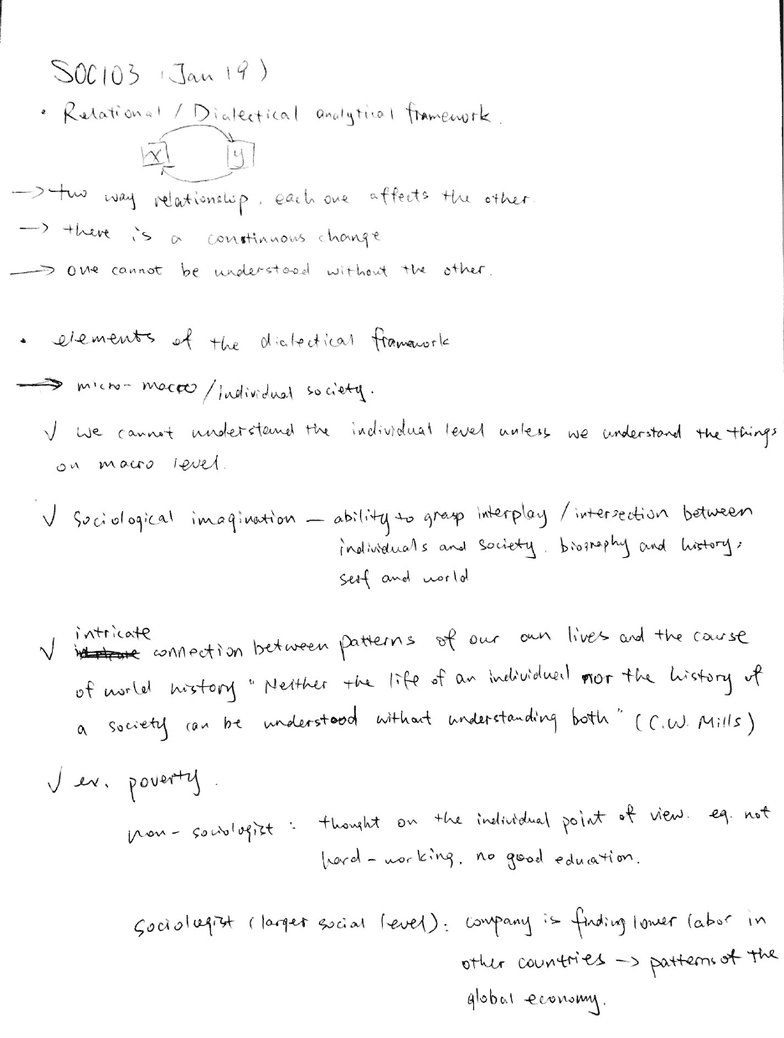 SOC103 (Jan 19)
• Relational / Dialectical analytical framework.
x y
→ two way relationship, each one affects the other.
→ there is a constinuous change
→ one cannot be understood without the other.
• elements of the dialectical framework
→ micro-macro/individual society.
√ We cannot understand the individual level unless we understand the things
on macro level.
√ Sociological imagination – ability to grasp interplay / intersection between
individuals and society. biography and history,
self and world
intricate
√ connection between patterns of our own lives and the course
of world history "Neither the life of an individual nor the history of
a society can be understood without understanding both" (C.W. Mills)
√ ex. poverty.
non-sociologist: thought on the individual point of view. eg. not
hard-working, no good education.
Sociologist (larger social level): company is finding lower labor in
other countries → patterns of the
global economy.